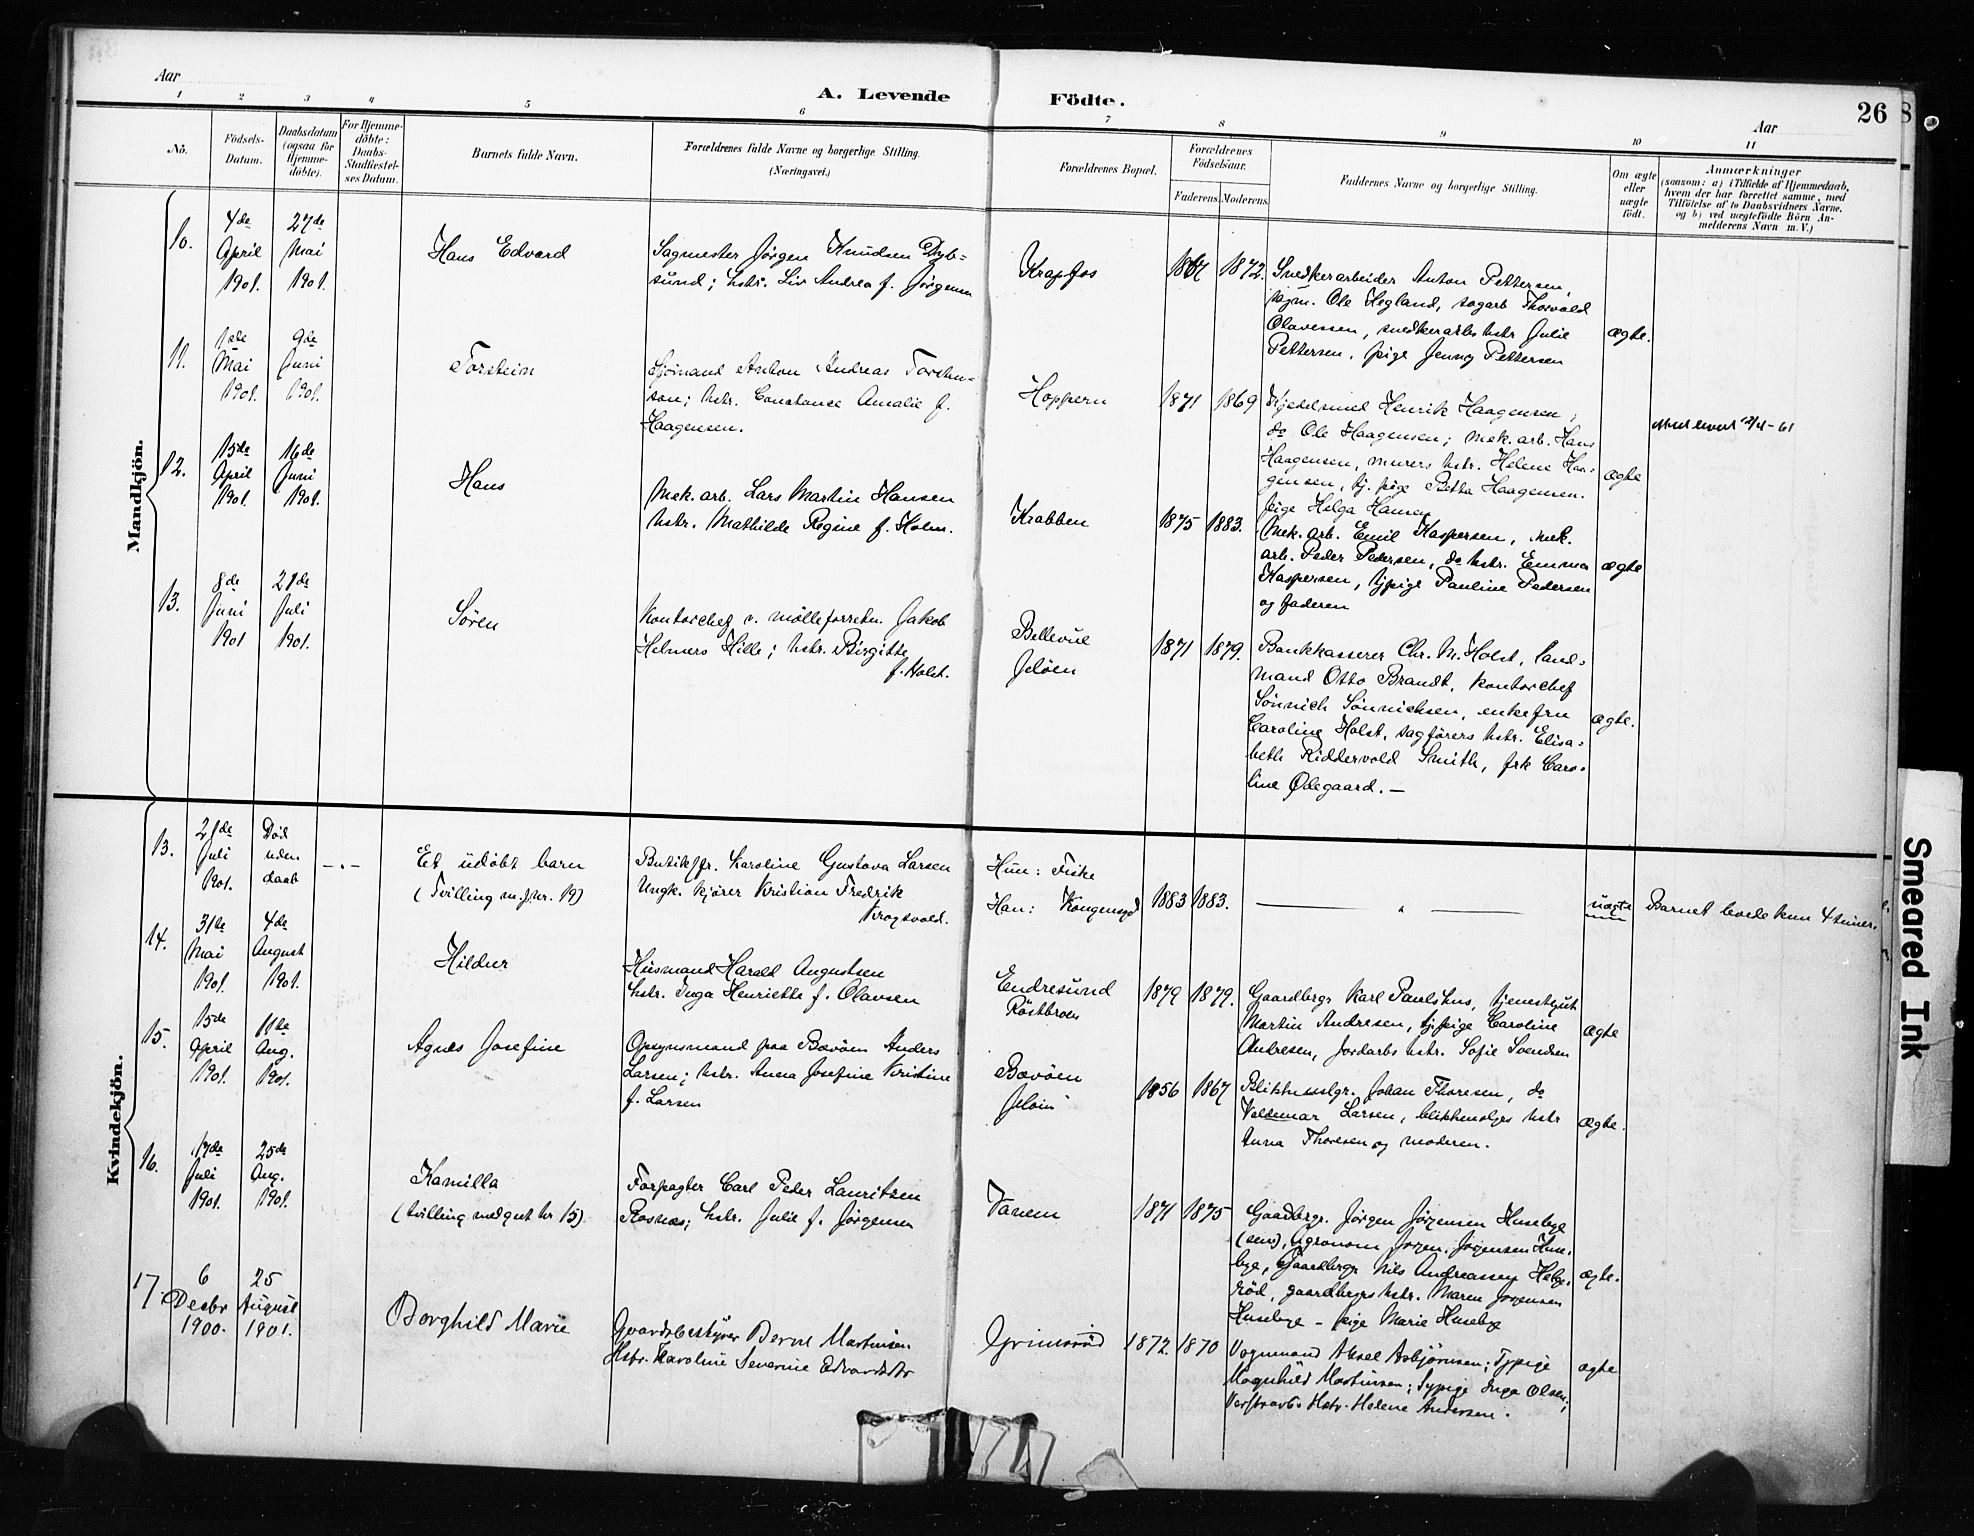 Aar
A. Levende Födte.
Aar
26
1 2 3 4 5 6 7 8 9 10 11
No.
Födsels-
Datum.
Daabsdatum
(ogsaa for
Hjemme-
döbte).
For Hjemme-
döbte:
Daabs-
Stadfæstel-
ses Datum.
Barnets fulde Navn.
Forældrenes fulde Navne og borgerlige Stilling.
(Næringsvei.)
Forældrenes Bopæl.
Forældrenes
Födselsaar.
Faderens.
Moderens.
Faddernes Navne og borgerlige Stilling.
Om ægte
eller
uægte
födt.
Anmærkninger
(saasom: a) i Tilfælde af Hjemmedaab,
hvem der har forrettet samme, med
Tilföielse af to Daabsvidners Navne,
og b) ved uægtefödte Börn An-
melderens Navn m. V.)
Mandkjön.
10.
4de
April
1901.
27de
Mai
1901.
Hans Edvard
Sagmester Jörgen Knudsen Dyb-
sund; hstr. Liv Andrea f. Jörgensen
Krapfos
1867
1872.
Snedkerarbeider Anton Pettersen,
sagm. Ole Hegland, sagarb Thorvald
Olavessen, snedkerarbs hstr Julie
Pettersen, pige Jenny Pettersen
ægte.
11.
1ste
Mai
1901.
9de
Juni
1901.
Torstein
Sjömand Anton Andreas Torsten-
son; hstr. Constance Amalie f.
Haagensen.
Hoppern
1871
1869
Kjedelsmed Henrik Haagensen;
do Ole Haagensen; mek. arb. Hans
Haagensen, murers hstr. Helene Haa-
gensen, tj. pige Betha Haagensen.
pige Helga Hansen
ægte
12.
15de
April
1901.
16de
Juni
1901.
Hans
Mek. arb. Lars Martin Hansen
hstr. Mathilde Regine f. Holm.
Krabben
1875
1883.
Mek. arb. Emil Kaspersen, mek.
arb. Peder Pedersen, do hstr. Emma
Kaspersen, tjpige Pauline Pedersen
og faderen
ægte
13.
8de
Juni
1901
21de
Juli
1901.
Sören
Kontorchef v. mölleforretn. Jakob
Helmers Hille; hstr. Birgitte
f. Holst.
Bellevue
Jelöen
1871
1879.
Bankkasserer Chr. M. Holst, land-
mand Otto Brandt, kontorchef
Sönnich Sönnichsen, enkefru
Caroline Holst, sagförers hstr. Elisa-
beth Riddervold Smith, frk Caro-
line Ødegaard. —
ægte.
Kvindekjön.
13.
21de
Juli
1901.
Död
uden
daab
— „ —
Et udöbt barn
(Tvilling m.f.nr. 19)
Butikfr. Karoline Gustava Larsen
Ungk. kjörer Kristian Fredrik
Krogsvold.
Hun: Fiske
Han:
1883
1883.
— „ —
uægte
Barnet levede kun 4 timer.
14.
31te
Mai
1901.
4de
August
1901.
Hildur
Husmand Harald Augustsen
hstr. Inga Henriette f. Olavsen
Endresund
1879
1879.
Gaardbergr Karl Paulshus, tjenestegut
Martin Andresen, tjpige Caroline
Andresen, jordarbs hstr. Sofie Svendsen
ægte
15.
15de
April
1901.
11te
Aug.
1901.
Agnes Josefine
Opsynsmand paa Bævöen Anders
Larsen; hstr. Anna Josefine Kristine
f. Larsen
Bævöen
Jelöin
1856
1867
Blikkenslgr. Johan Thoresen, do
Valdemar Larsen, blikkenslgrs hstr
Anna Thoresen og moderen.
ægte.
16.
17de
Juli
1901.
25de
Aug.
1901.
Kamilla
(tvilling med gut nr 15)
Forpagter Carl Peder Lauritsen
Rosnæs; hstr. Julie f. Jörgensen
Vanem
1871
1875
Gaardbergr. Jörgen Jörgensen Husebye
(sen), Agronom Jörgen Jörgensen Huse-
bye, Gaardbergr Nils Andreassen Helge-
röd, gaardbrgrs hstr. Maren Jörgensen
Husebye - pige Marie Husebye
ægte.
17.
6
Decbr
1900.
25
August
1901.
Borghild Marie
Gaardsbestyrer Bernt Martinsen
Hstr. Karoline Severine Edvardsdtr
Grimsröd
1872.
1870
Vognmand Aksel Asbjörnsen; Tjpige
Magnhild Martinsen; Sypige Inga Olsen;
Hstr. Helene Andersen.
ægte
Smeared Ink